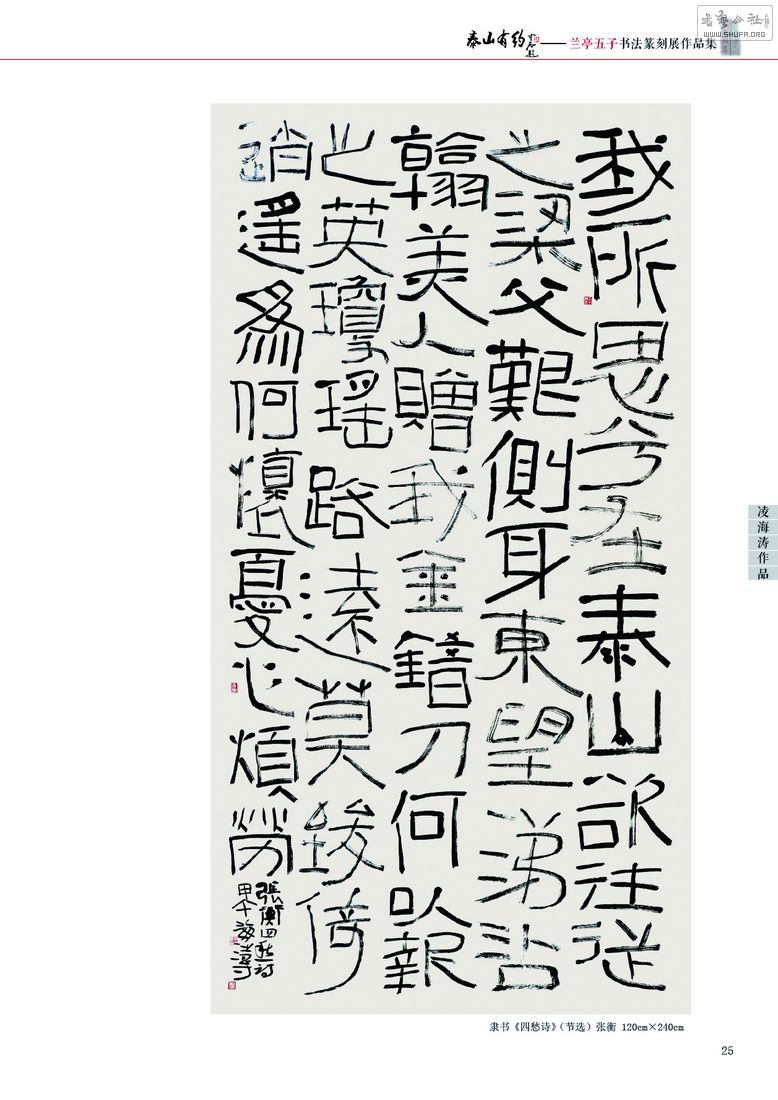 泰山有约——兰亭五子书法篆刻展作品集
書藝公社
WWW.SHUFA.ORG
我所思兮在泰山欲往從
之梁父艱側身東望涕沾
翰美人贈我金錯刀何以報
之英瓊瑤路遠莫致倚
逍遙為何懷憂心煩勞
張衡四愁詩
甲午海濤
凌海涛作品
隶书《四愁诗》（节选）张衡 120cm×240cm
25